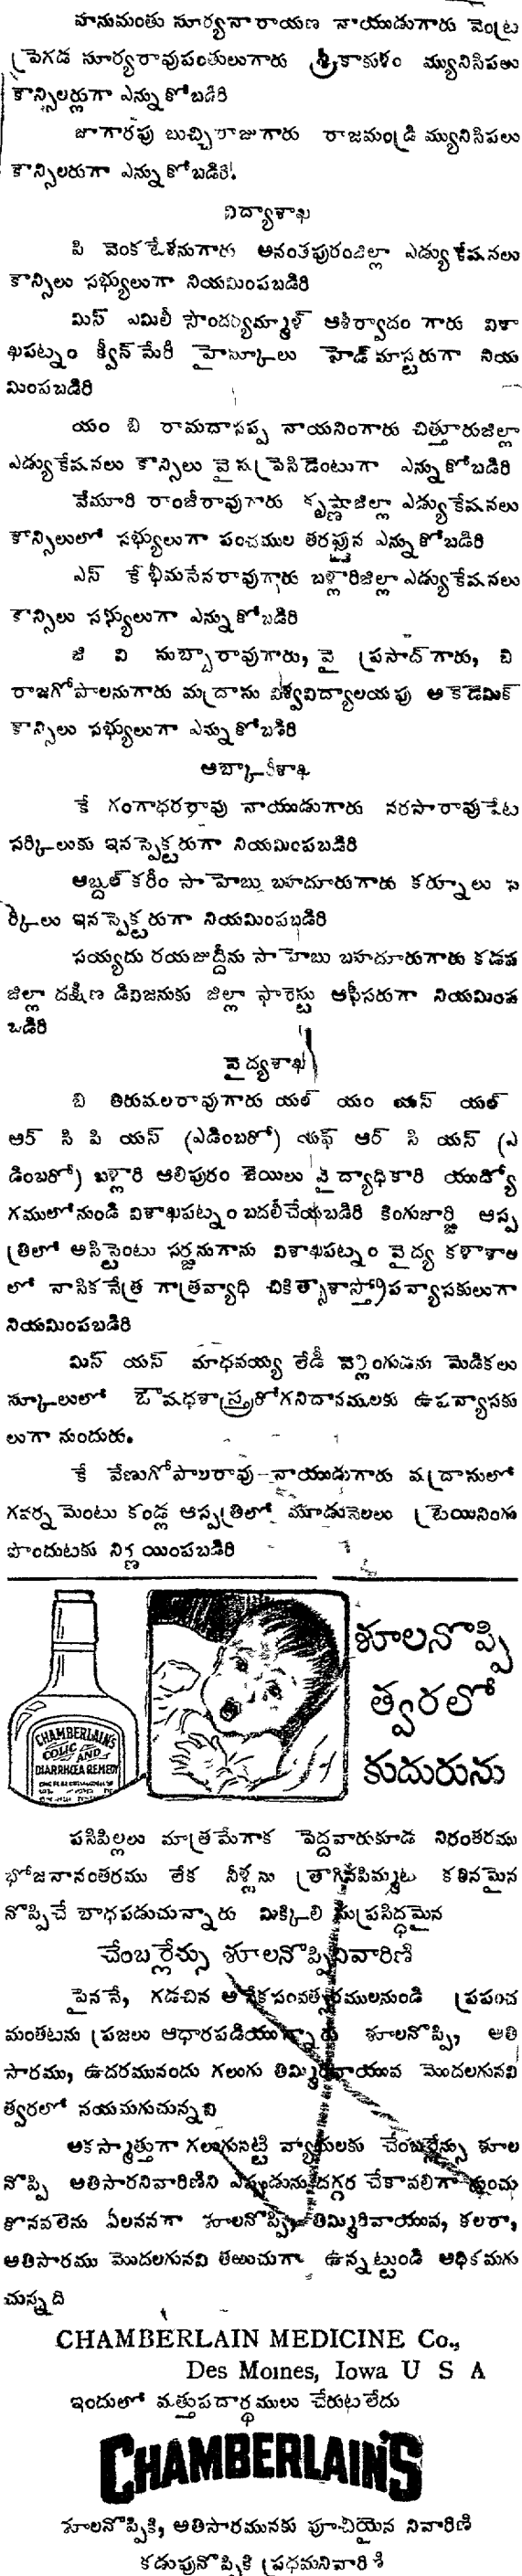 హనుమంతు సూర్యనారాయణ నాయుడుగారు వెంట్ర
ప్రెగడ సూర్యరావుపంతులుగారు శ్రీకాకుళం మ్యునిసిపలు
కౌన్సిలర్లుగా ఎన్నుకోబడిరి
జాగారపు బుచ్చిరాజుగారు రాజమండ్రి మ్యునిసిపలు
కౌన్సిలరుగా ఎన్నుకోబడిరి.
విద్యాశాఖ
పి వెంకటేశనుగారు అనంతపురంజిల్లా ఎడ్యుకేషనలు
కౌన్సిలు సభ్యులుగా నియమింపబడిరి
మిస్ ఎమిలీ సౌందర్యమ్మాళ్ ఆశీర్వాదం గారు విశా
ఖపట్నం క్వీన్ మేరీ హైస్కూలు హెడ్ మాస్టరుగా నియ
మింపబడిరి
యం బి రామదాసప్ప నాయనింగారు చిత్తూరుజిల్లా
ఎడ్యుకేషనలు కౌన్సిలు వైసు ప్రెసిడెంటుగా ఎన్నుకోబడిరి
వేమూరి రాంజీరావుగారు కృష్ణాజిల్లా ఎడ్యుకేషనలు
కౌన్సిలులో సభ్యులుగా పంచముల తరపున ఎన్నుకోబడిరి
ఎస్ కే భీమసేనరావుగారు బళ్లారిజిల్లా ఎడ్యుకేషనలు
కౌన్సిలు సభ్యులుగా ఎన్నుకోబడిరి
జి వి సుబ్బారావుగారు, వై ప్రసాద్ గారు, టి
రాజగోపాలనుగారు మద్రాసు విశ్వవిద్యాలయపు అకెడెమిక్
కౌన్సిలు సభ్యులుగా ఎన్నుకోబడిరి
ఆబ్కారీశాఖ
కే గంగాధరరావు నాయుడుగారు నరసారావుపేట
సర్కిలుకు ఇనస్పెక్టరుగా నియమింపబడిరి
అబ్దుల్ కరీం సాహెబు బహదూరుగారు కర్నూలు స
ర్కిలు ఇనస్పెక్టరుగా నియమింపబడిరి
సయ్యదు రయజుద్దీను సాహెబు బహదూరుగారు కడప
జిల్లా దక్షిణ డివిజనుకు జిల్లా ఫారెస్టు ఆఫీసరుగా నియమింప
బడిరి
వైద్యశాఖ
బి తిరుమలరావుగారు యల్ యం యస్ యల్
ఆర్ సి పి యస్ (ఎడింబరో) యఫ్ ఆర్ సి యస్ (ఎ
డింబరో) బళ్లారి ఆలిపురం జెయిలు వైద్యాధికారి యుద్యో
గములోనుండి విశాఖపట్నం బదలీచేయబడిరి కింగుజార్జి ఆస్ప
త్రిలో అసిస్టెంటు సర్జనుగాను విశాఖపట్నం వైద్య కళాశాల
లో నాసిక నేత్ర గాత్రవ్యాధి చికిత్సాశాస్త్రోపన్యాసకులుగా
నియమింపబడిరి
మిస్ యస్ మాధవయ్య లేడీ వెల్లింగుడను మెడికలు
స్కూలులో ఔషధశాస్త్ర రోగనిదానములకు ఉపన్యాసకు
లుగా నుందురు.
కే వేణుగోపాలరావు నాయుడుగారు మద్రాసులో
గవర్నమెంటు కండ్ల ఆస్పత్రిలో మూడునెలలు ట్రెయినింగు
పొందుటకు నిర్ణయింపబడిరి
CHAMBERLAIN'S
COLIC AND
DIARRHŒA REMEDY
శూలనొప్పి
త్వరలో
కుదురును
పసిపిల్లలు మాత్రమేగాక పెద్దవారుకూడ నిరంతరము
భోజనానంతరము లేక నీళ్లను త్రాగినపిమ్మట కఠినమైన
నొప్పిచే బాధపడుచున్నారు మిక్కిలి సుప్రసిద్ధమైన
చేంబర్లేన్సు శూలనొప్పినివారిణి
పైననే, గడచిన అనేకసంవత్సరములనుండి ప్రపంచ
మంతటను ప్రజలు ఆధారపడియున్నారు శూలనొప్పి, అతి
సారము, ఉదరమునందు గలుగు తిమ్మిరివాయువ మొదలగునవి
త్వరలో నయమగుచున్నవి
అకస్మాత్తుగా గలుగునట్టి వ్యాధులకు చేంబర్లేన్సు శూల
నొప్పి అతిసారనివారిణిని ఎప్పుడును దగ్గర చేకావలిగా నుంచు
కొనవలెను ఏలననగా శూలనొప్పి, తిమ్మిరివాయువ, కలరా,
అతిసారము మొదలగునవి తఱుచుగా ఉన్నట్టుండి అధికమగు
చున్నది
CHAMBERLAIN MEDICINE Co.,
Des Moines, Iowa U S A
ఇందులో మత్తుపదార్థములు చేరుటలేదు
CHAMBERLAIN'S
శూలనొప్పికి, అతిసారమునకు పూచీయైన నివారిణి
కడుపునొప్పికి ప్రథమనివారిణి